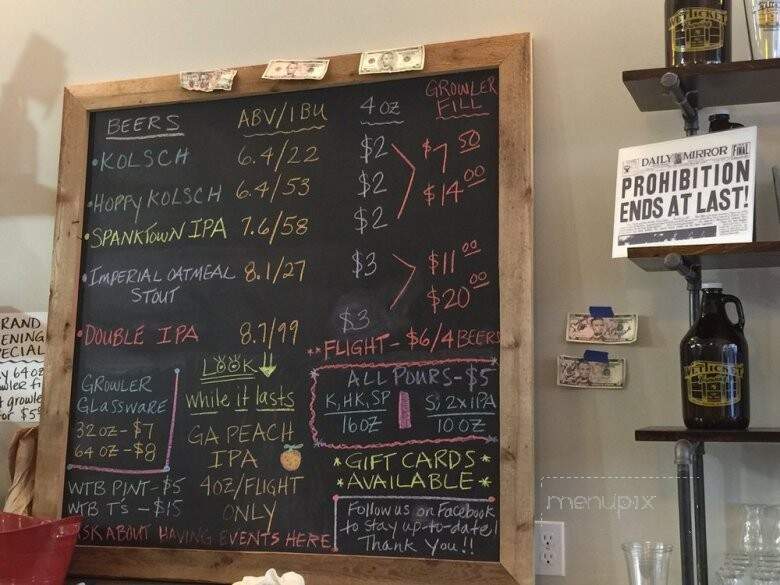 BEERS ABV/IBU 4 OZ GROWLER FILL
• KOLSCH 6.4/22 $2 $7 50
• HOPPY KOLSCH 6.4/53 $2 $14 00
• SPANKTOWN IPA 7.6/58 $2
• IMPERIAL OATMEAL STOUT 8.1/27 $3 $11 00
$20 00
• DOUBLE IPA 8.7/99 $3
** FLIGHT - $6/4 BEERS
GROWLER
GLASSWARE
32 OZ - $7
64 OZ - $8
WTB PINT - $5
WTB T'S - $15
LOOK
while it lasts
GA PEACH
IPA
4OZ/FLIGHT
ONLY
ALL POURS - $5
K, HK, SP S, 2xIPA
16OZ 10 OZ
* GIFT CARDS *
* AVAILABLE *
Follow us on Facebook
to stay up-to-date!
Thank you!!
ASK ABOUT HAVING EVENTS HERE
DAILY MIRROR FINAL
PROHIBITION
ENDS AT LAST!
menupix